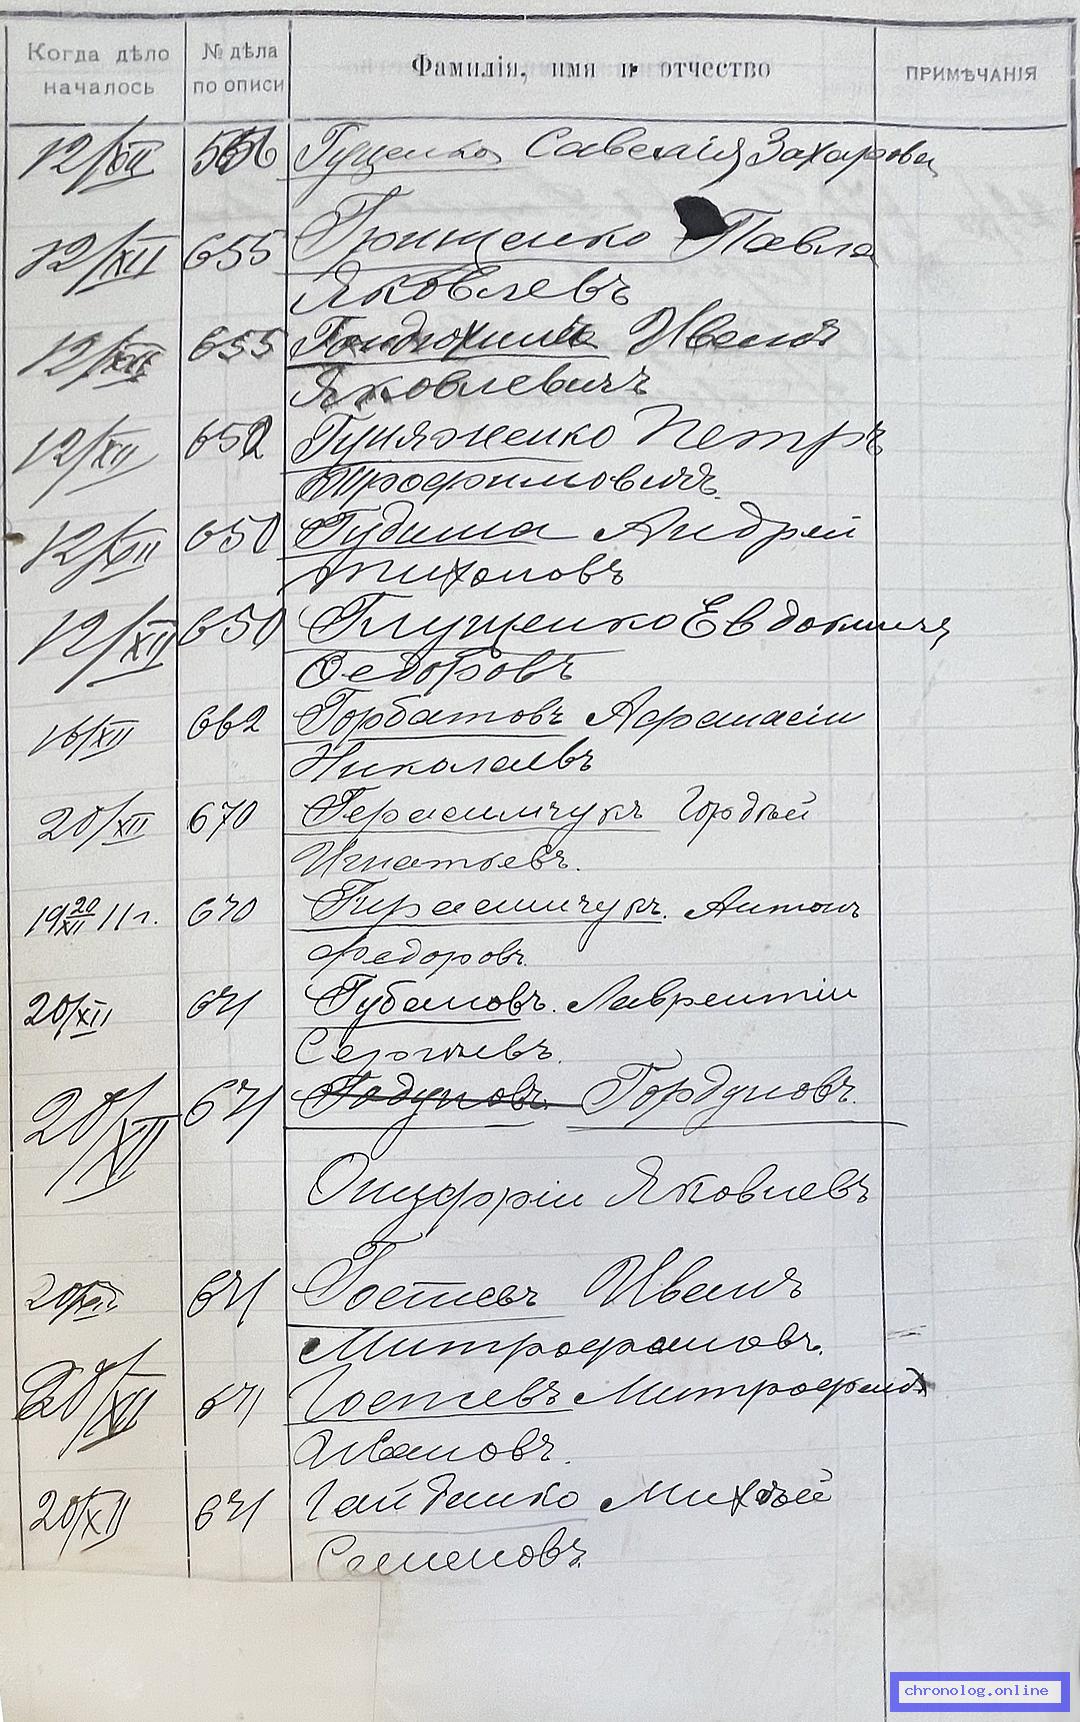 Когда дѣло началось № дѣла по описи Фамилія, имя и отчество ПРИМѢЧАНІЯ
12/XII Гуценко Савелія Захарова
12/XII 655 Грищенко Павла
Яковлевъ
12/XII 655 Ивана
Яковлевичъ
12/XII 652 Петръ
Трофимовичъ
12/XII 650 Гудима Андрей
Тихоновъ
12/XII 650 Глущенко Евдокимъ
Федоровъ
16/XII 662 Горбатовъ Афанасій
Николаевъ
20/XII 670 Герасимчукъ Гордѣй
Игнатьевъ.
19 20/XII 11 г. 670 Герасимчукъ. Антонъ
Федоровъ.
20/XII 671 Губановъ. Лаврентій
Сергѣевъ.
20/XII 671 Годуновъ. Гордуновъ.
Онуфрій Яковлевъ
20/XII 671 Гостевъ Иванъ
Митрофановъ.
20/XII 671 Гостевъ Митрофанъ
Ивановъ.
20/XII 671 Гайденко Михѣй
Семеновъ.
chronolog.online